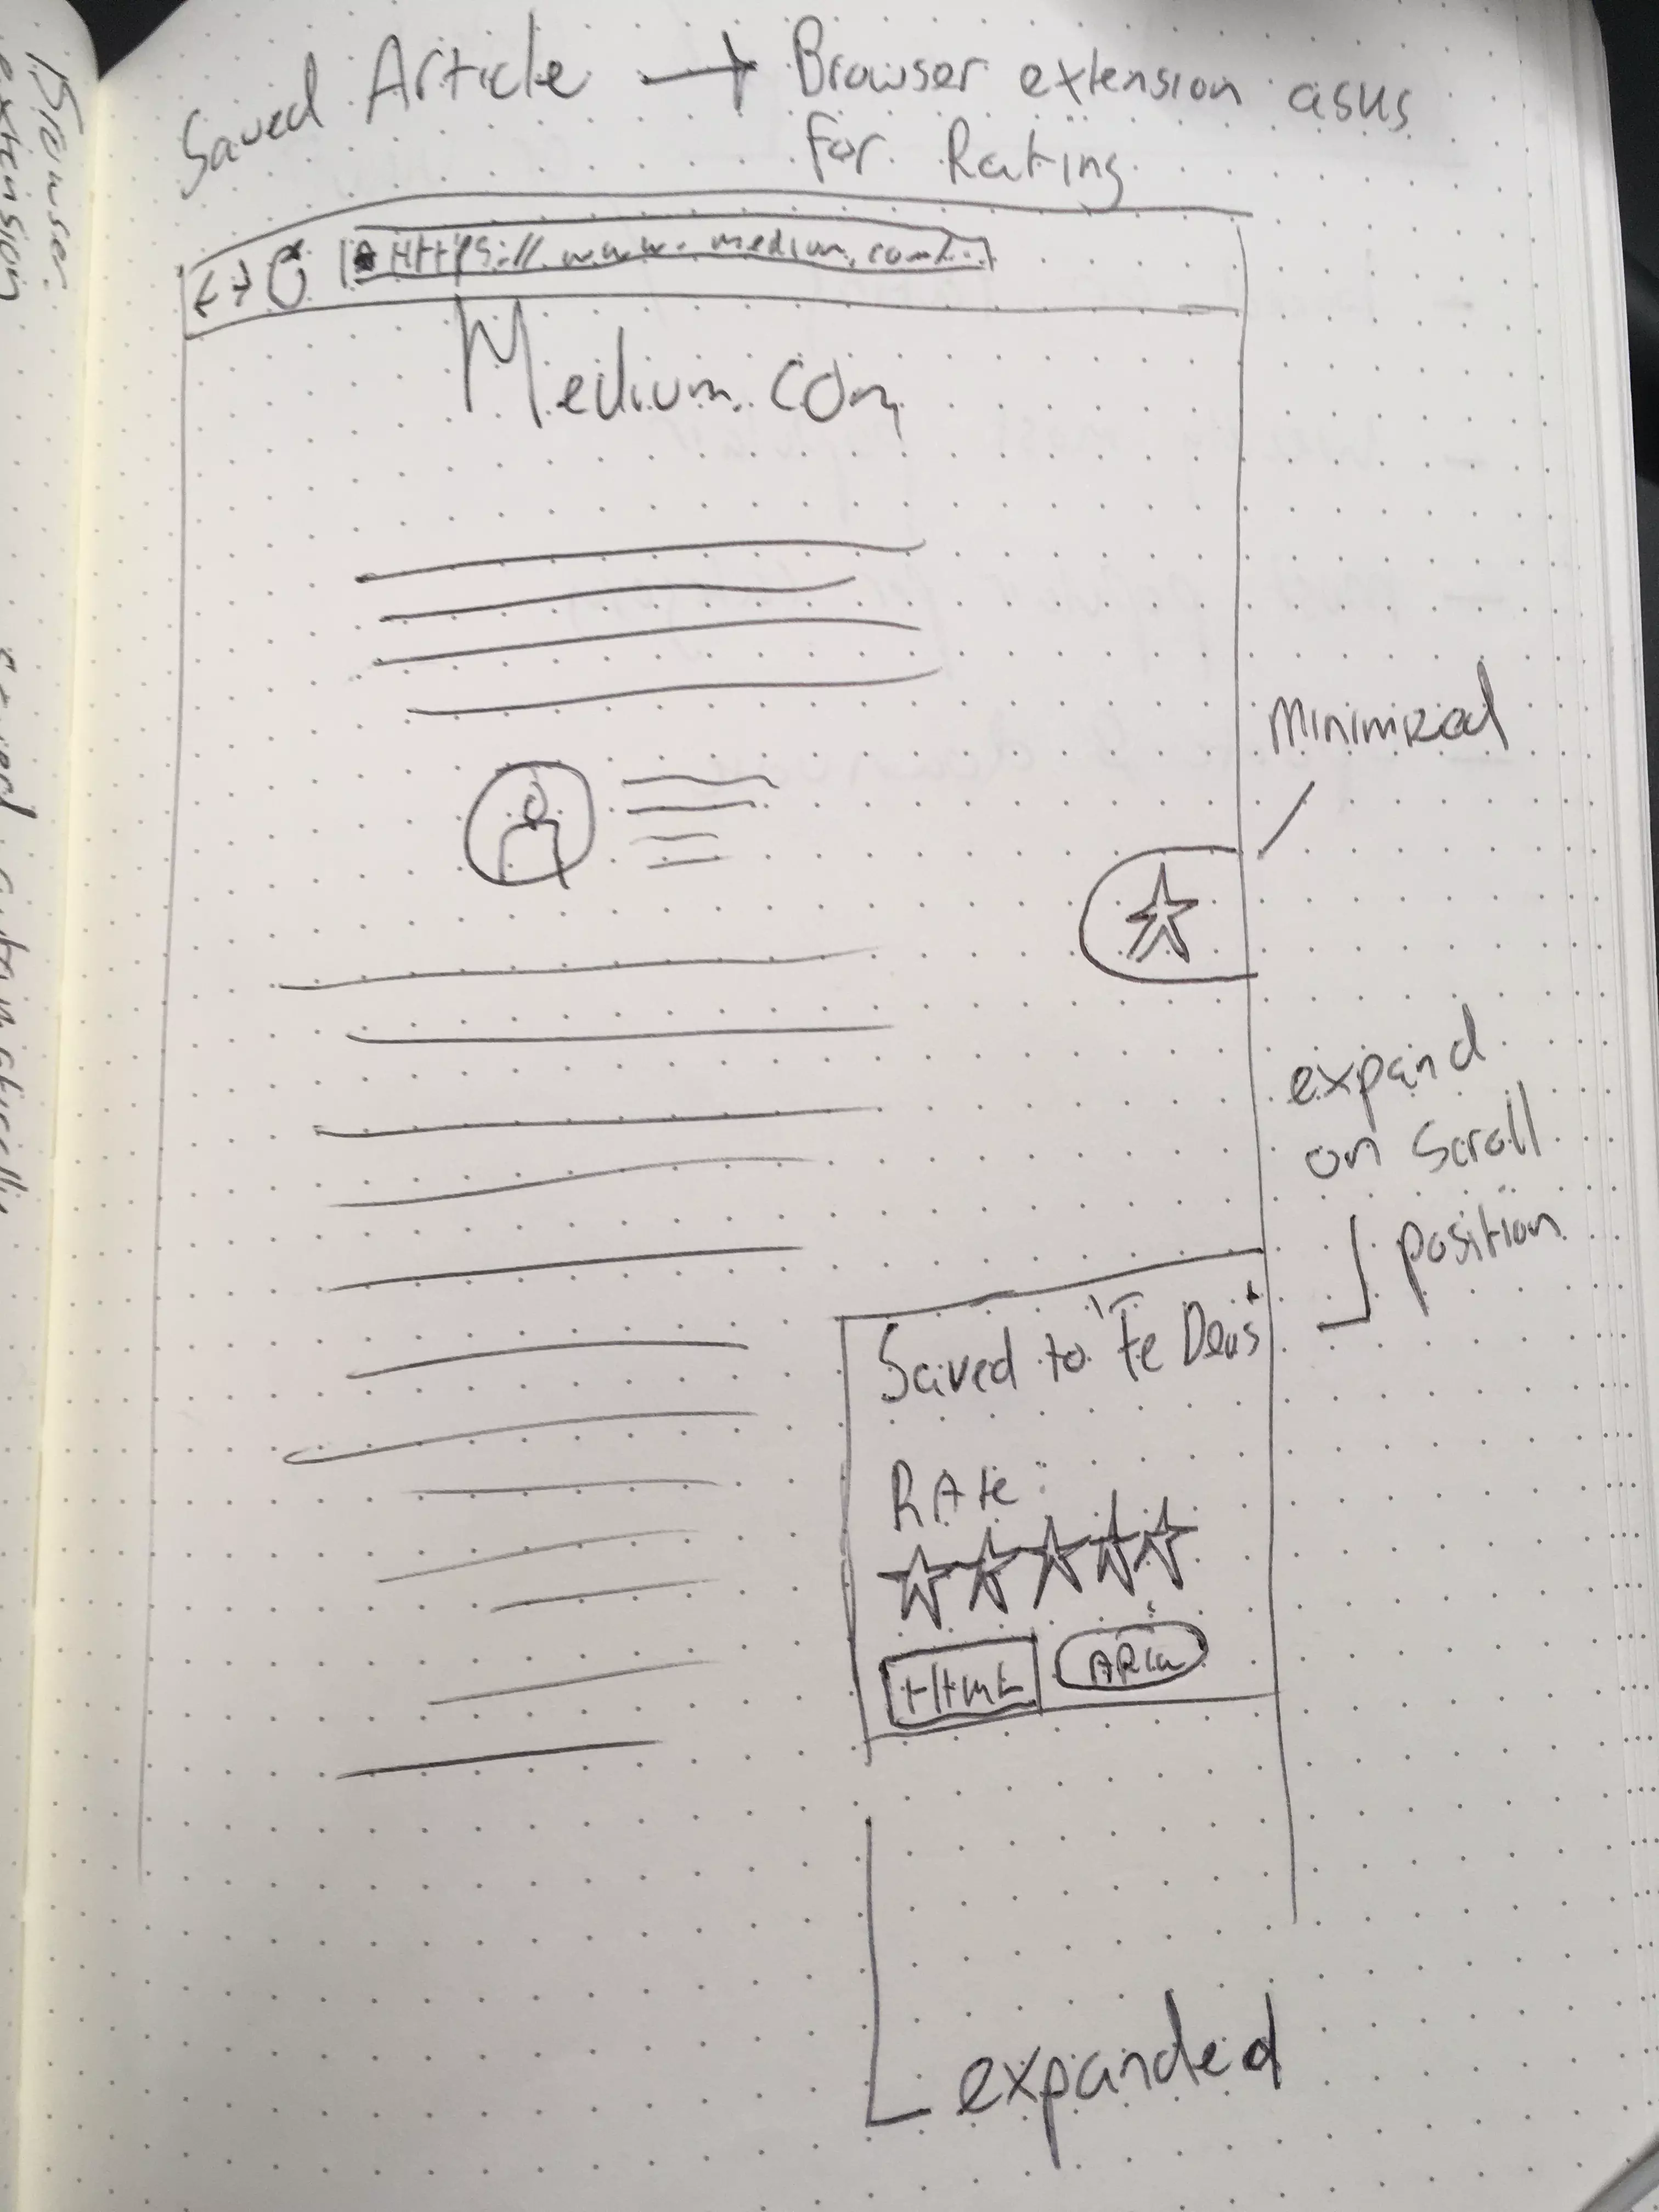 Saved Article → Browser extension asks
for Rating
HttpS://www.medium.com/...
Medium.com
Minimized
expand
on Scroll
position
Saved to 'Fe Devs'
RAte:
Html
ARia
expanded
Browser
extension